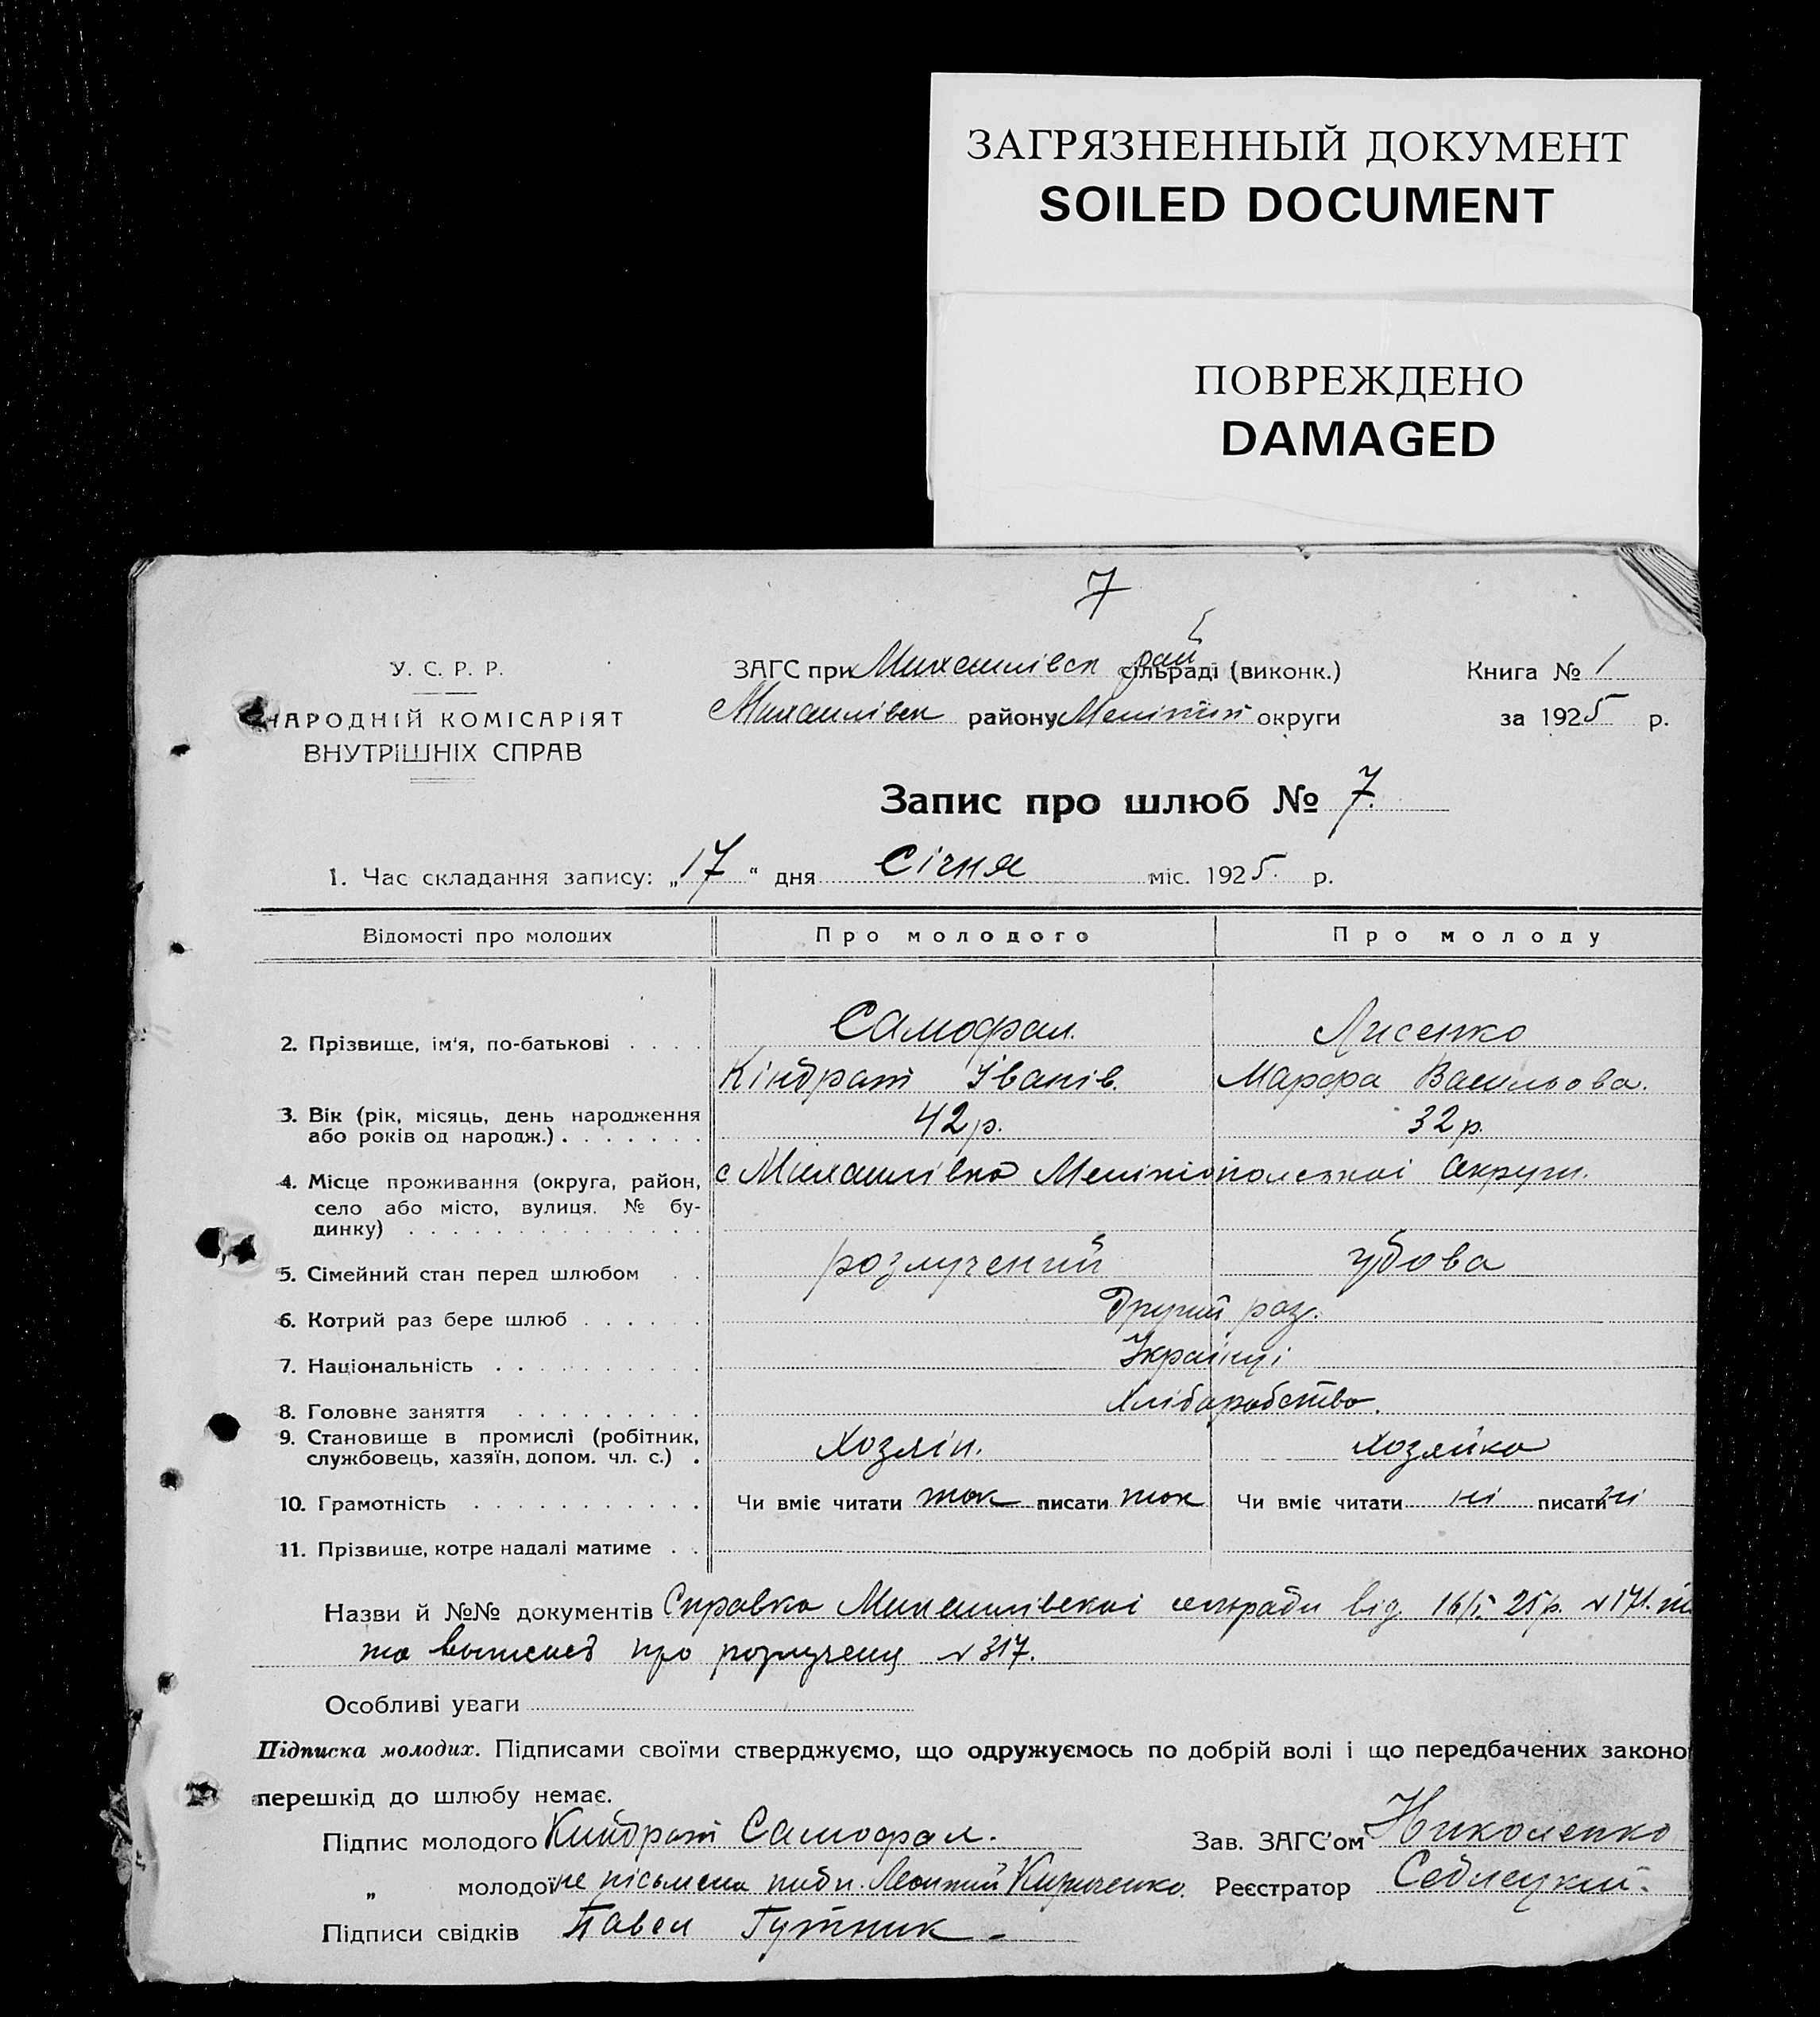 ЗАГРЯЗНЕННЫЙ ДОКУМЕНТ
SOILED DOCUMENT
ПОВРЕЖДЕНО
DAMAGED
7
У. С. Р. Р.
НАРОДНІЙ КОМІСАРІЯТ
ВНУТРІШНІХ СПРАВ
ЗАГС при Михайлівськ рай сільраді (виконк.)
Книга № 1
Михайлівськ району Меліпіл округи
за 1925 р.
Запис про шлюб № 7.
1. Час складання запису: „17“ дня Січня міс. 1925. р.
Відомості про молодих Про молодого Про молоду
2. Прізвище, ім'я, по-батькові . . . . Самофал. Лисенко
Кіндрат Іванів. Марфа Васильова.
3. Вік (рік, місяць, день народження
або років од народж.) . . . . . . . 42 р. 32 р.
4. Місце проживання (округа, район, с Михайлівка Мелітопольскої Округи.
село або місто, вулиця. № бу-
динку) . . . . . . . . . . . . . .
5. Сімейний стан перед шлюбом . . розлучений удова
6. Котрий раз бере шлюб . . . . . . Другий раз.
7. Національність . . . . . . . . . Українці
8. Головне заняття . . . . . . . . . Хліборобство.
9. Становище в промислі (робітник,
службовець, хазяїн, допом. чл. с.) . Хозяін. Хозяйка
10. Грамотність . . . . . . . . . . . Чи вміє читати так писати так Чи вміє читати ні писати ні
11. Прізвище, котре надалі матиме . .
Назви й №№ документів Справка Михайлівскої сельради від 16/I 25 р. № 171.
та випись про розлучення № 317.
Особливі уваги
Підписка молодих. Підписами своїми стверджуємо, що одружуємось по добрій волі і що передбачених законо
перешкід до шлюбу немає.
Підпис молодого Киндрат Самофал. Зав. ЗАГС'ом Николенко
„ молодої не пісьмена подп. Леонтий Кириченко. Реєстратор Седлецкий.
Підписи свідків Павел Гутник